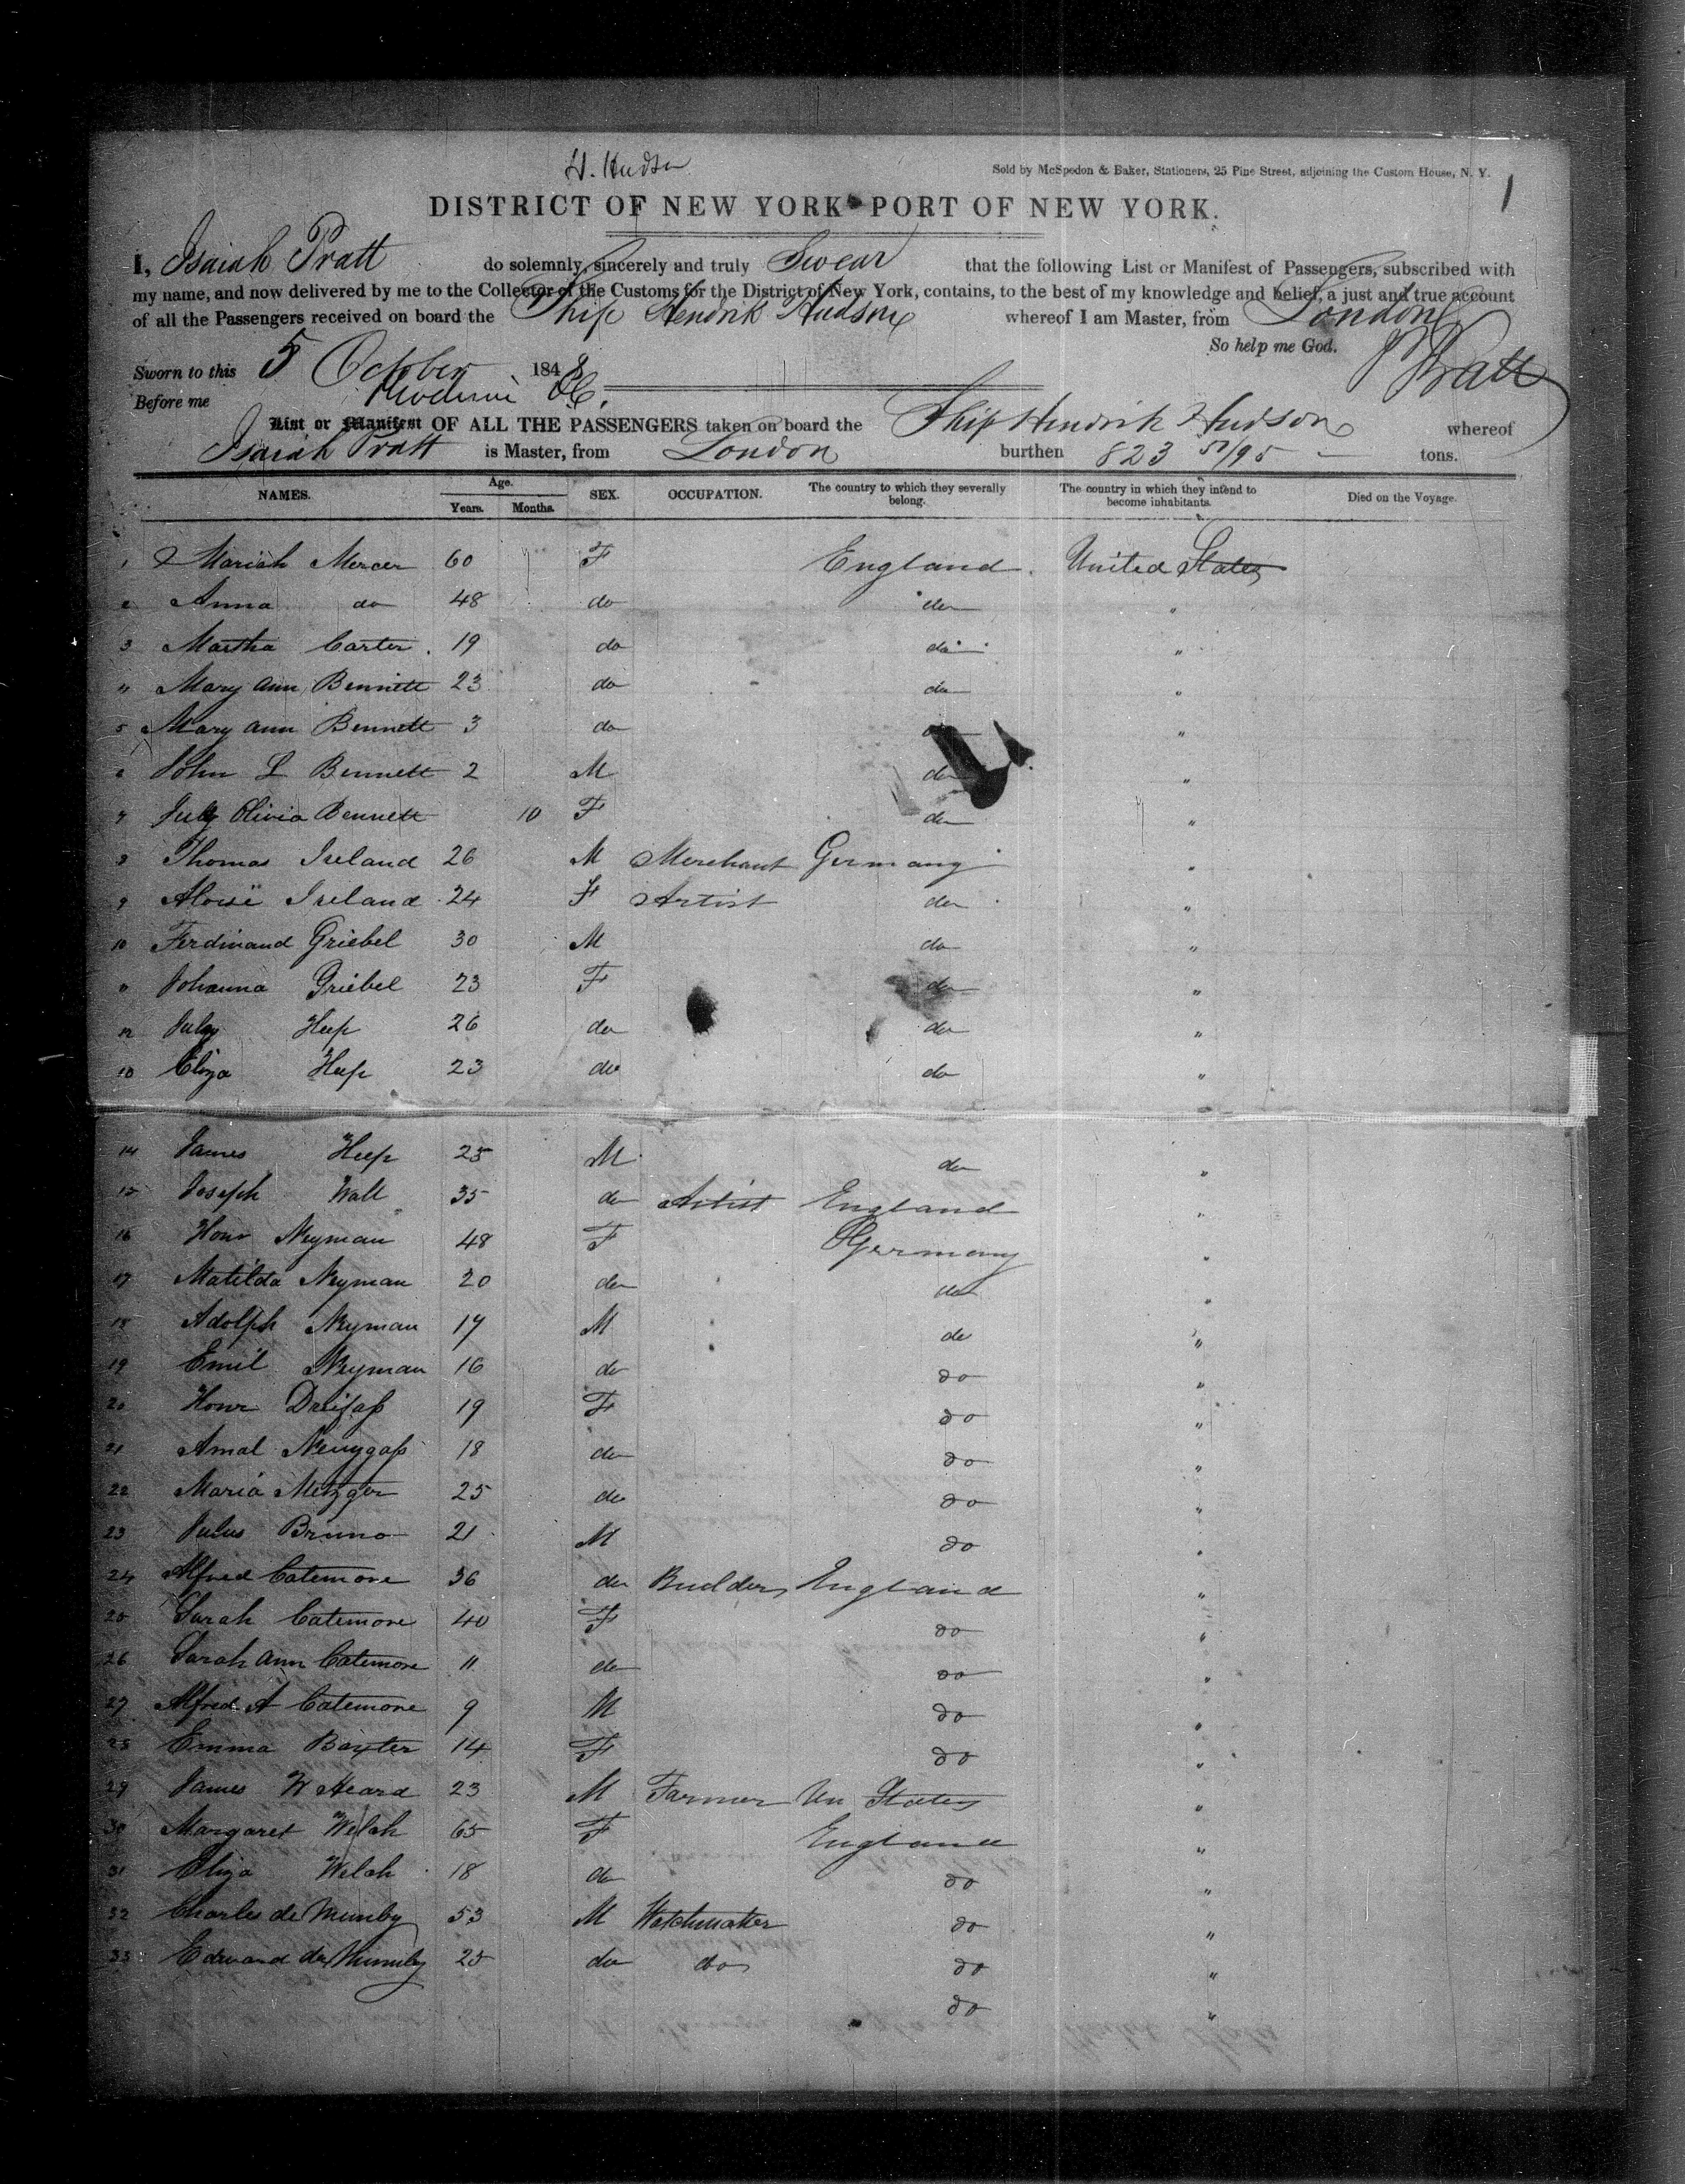 H. Hudson
Sold by McSpedon & Baker, Stationers, 25 Pine Street, adjoining the Custom House, N. Y.
1
DISTRICT OF NEW YORK PORT OF NEW YORK.
I, Isaiah Pratt do solemnly, sincerely and truly Swear that the following List or Manifest of Passengers, subscribed with
my name, and now delivered by me to the Collector of the Customs for the District of New York, contains, to the best of my knowledge and belief, a just and true account
of all the Passengers received on board the Ship Hendrik Hudson whereof I am Master, from London
So help me God.
Sworn to this 5 October 1848 I Pratt
Before me
List or Manifest OF ALL THE PASSENGERS taken on board the Ship Hendrik Hudson whereof
Isaiah Pratt is Master, from London burthen 823 51/95 tons.
NAMES. Age. Years. Months. SEX. OCCUPATION. The country to which they severally belong. The country in which they intend to become inhabitants. Died on the Voyage.
1 Mariah Mercer 60 F England. United States
2 Anna do 48 do do "
3 Martha Carter. 19 do do "
4 Mary Ann Bennett 23 do do "
5 Mary Ann Bennett 3 do do "
6 John L Bennett 2 M do "
7 July Olivia Bennett 10 F do "
8 Thomas Ireland 26 M Merchant Germany "
9 Aloise Ireland 24 F Artist do "
10 Ferdinand Griebel 30 M do "
11 Johanna Griebel 23 F do "
12 July Heep 26 do do "
13 Eliza Heep 23 do do "
14 James Heep 25 M do "
15 Joseph Wall 35 do Artist England "
16 Honr Neyman 48 F Germany "
17 Matilda Neyman 20 do do "
18 Adolph Neyman 17 M do "
19 Emil Neyman 16 do do "
20 Honr 19 F do "
21 Amal 18 do do "
22 Maria Metzger 25 do do "
23 Julus Bruno 21 M do "
24 Alfred Catemore 36 do Builder England "
25 Sarah Catemore 40 F do "
26 Sarah Ann Catemore 11 do do "
27 Alfred A Catemore 9 M do "
28 Emma Baxter 14 F do "
29 James W Heard 23 M Farmer Un States "
30 Margaret Welch 65 F England "
31 Eliza Welch 18 do do "
32 Charles de Mumby 53 M Watchmaker do "
33 Edward de Mumby 25 do do do "
do "